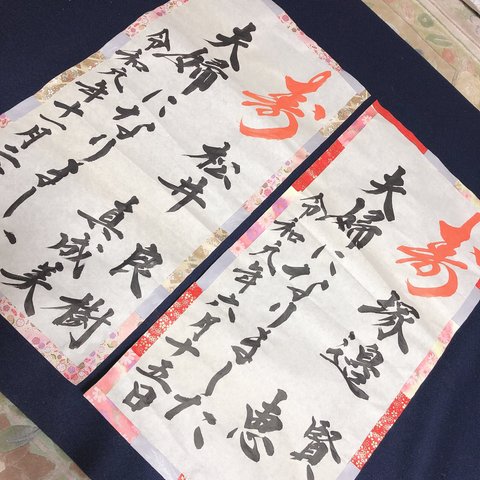 寿
夫婦になりました
松井 良樹
真成美
令和元年十一月二
寿
夫婦になりました
塚邉 賢
恵
令和元年六月十五日